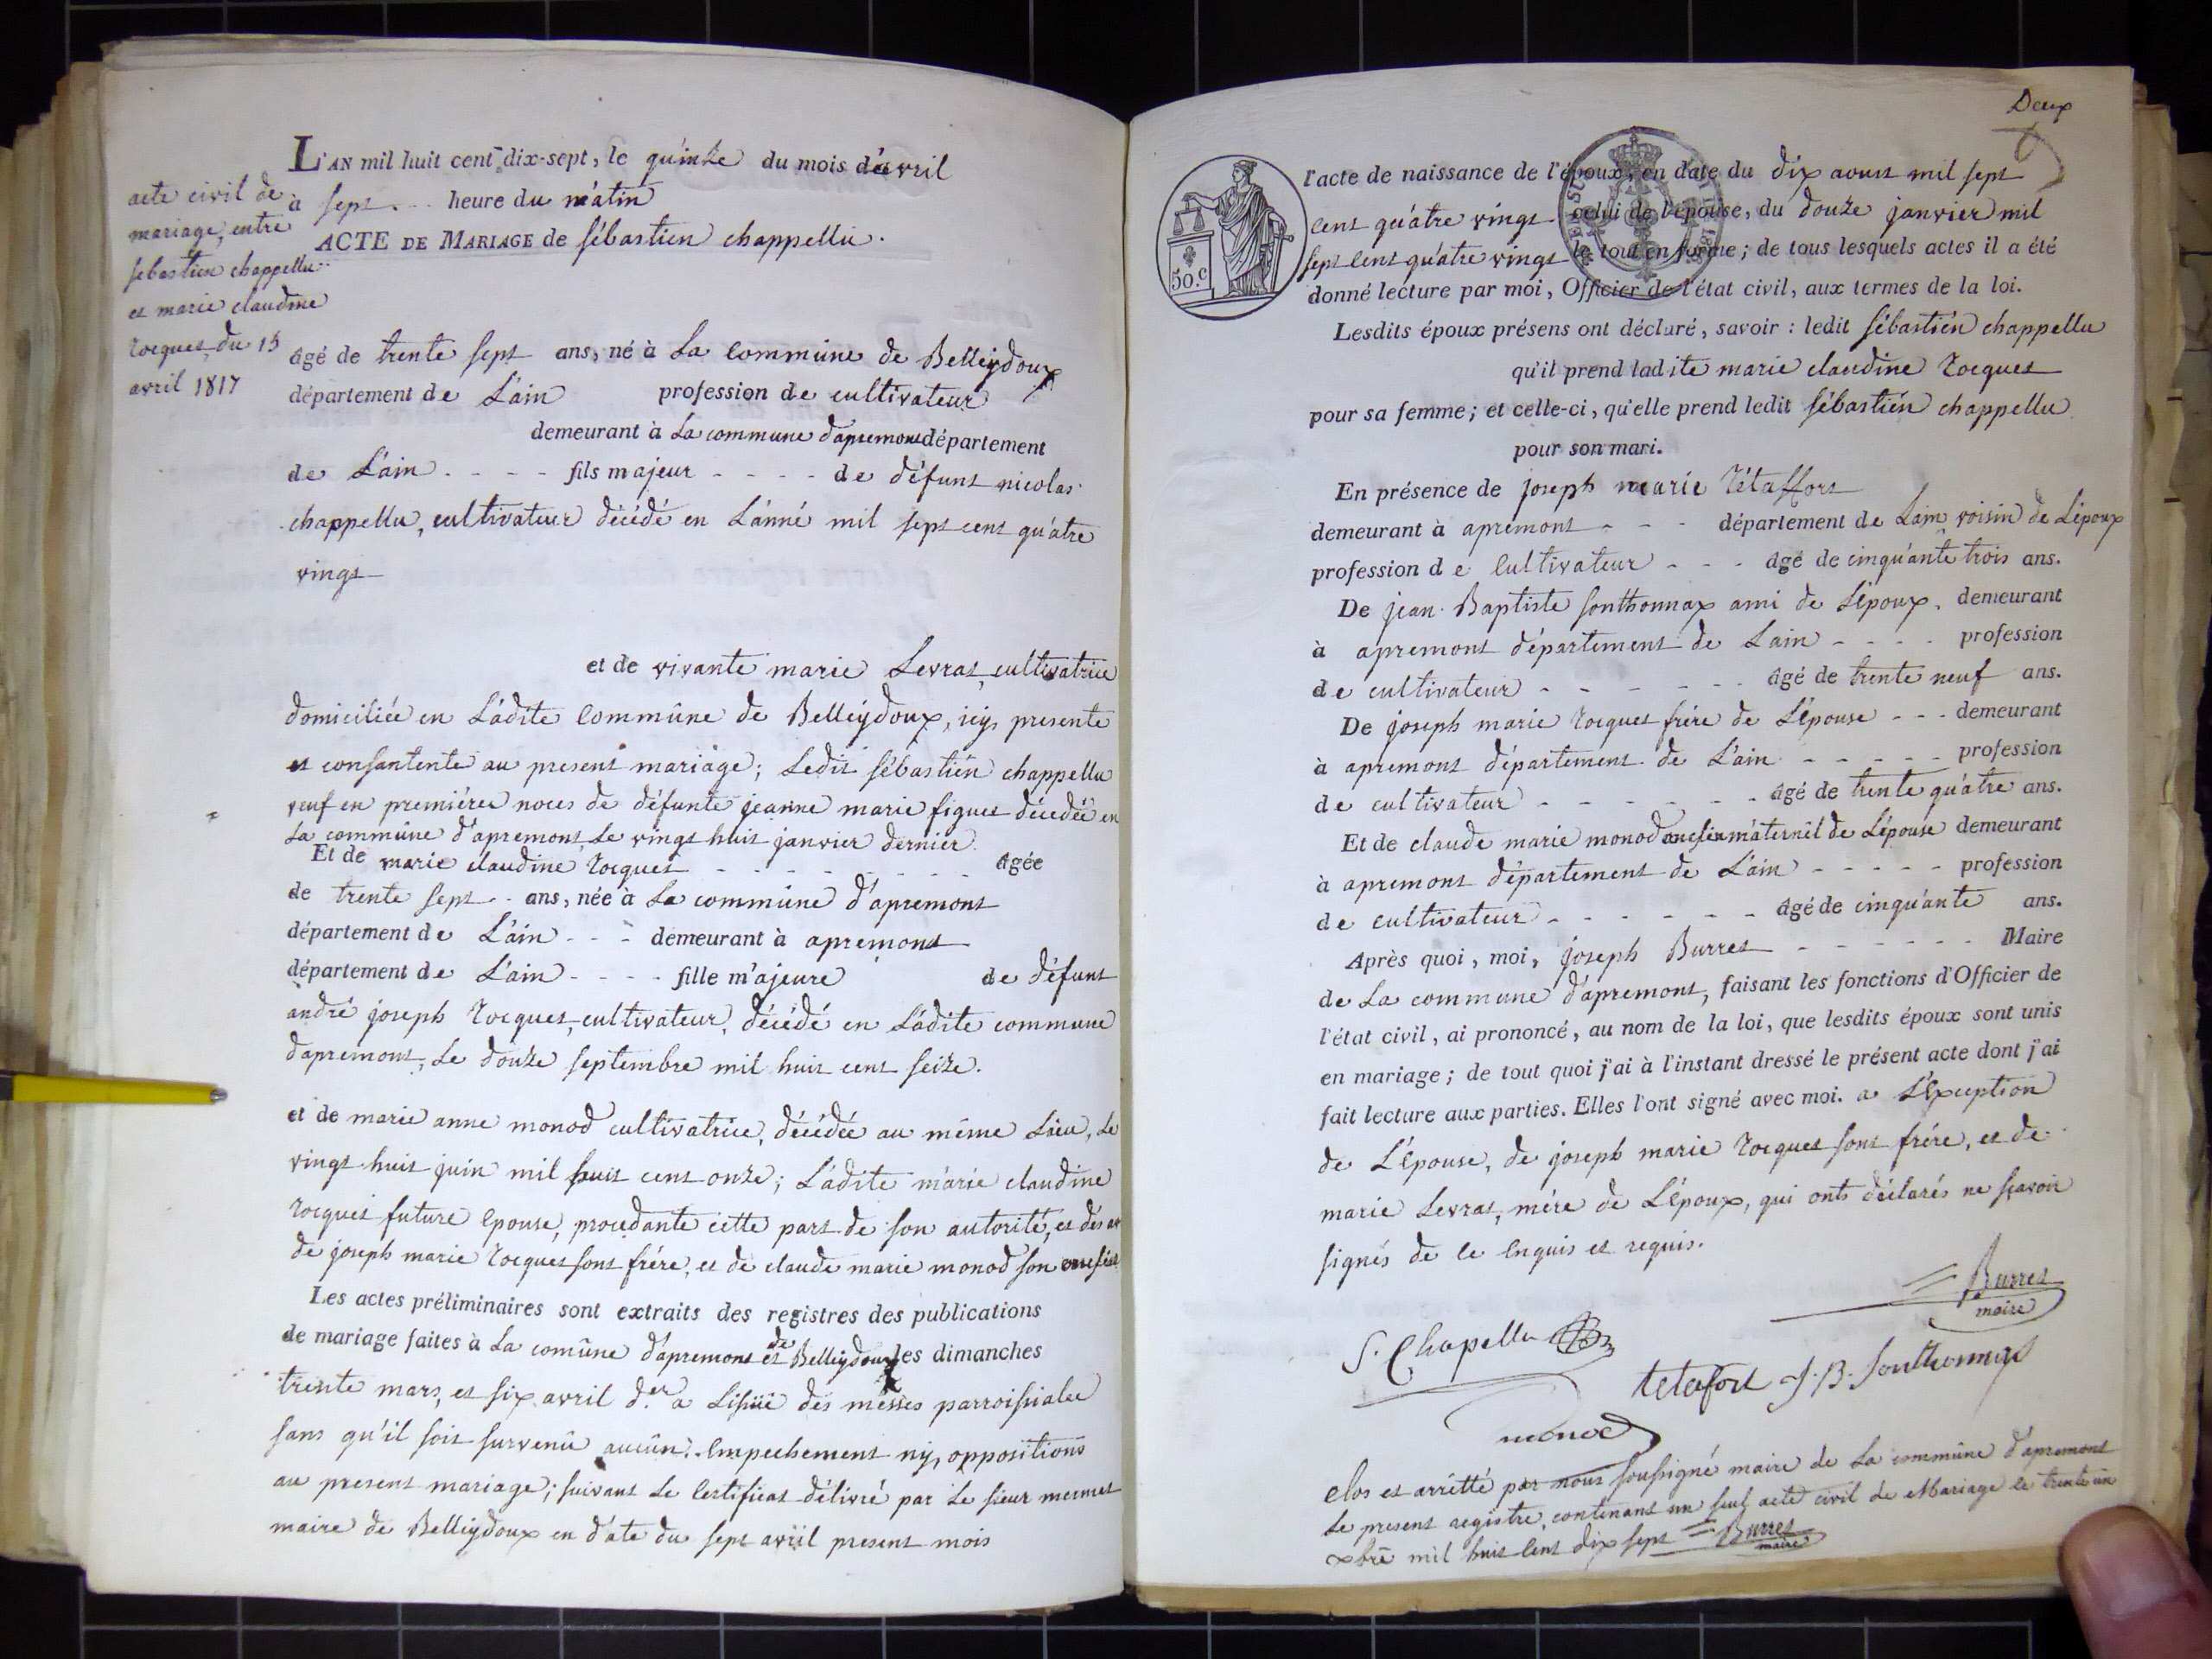 acte civil de
mariage, entre
sébastien chappellu
et marie claudine
rocquet, du 15
avril 1817
L'AN mil huit cent dix-sept, le quinze du mois d'avril
à sept heure du matin
ACTE DE MARIAGE de sébastien chappellu.
âgé de trente sept ans, né à La Commune de Belleÿdoux
département de L'ain profession de cultivateur
demeurant à La commune d'apremont département
de L'ain - - - - fils majeur - - - - de défunt nicolas
chappellu, cultivateur décédé en L'anné mil sept cent quatre
vingt
et de vivante marie Levrat, cultivatrice
domiciliée en Ladite Commune de Belleÿdoux, icy presente
et consantente au present mariage; Ledit sébastien chappellu
veuf en premiéres noces de défunte jeanne marie figuet décédée en
La commune d'apremont Le vingt huit janvier dernier.
Et de marie claudine rocquet - - - - - - - - âgée
de trente sept - ans, née à La commune d'apremont
département de L'ain - - - demeurant à apremont
département de L'ain - - - - fille majeure de défunt
andré joseph rocquet, cultivateur, décédé en Ladite commune
dapremont, Le douze septembre mil huit cent seize.
et de marie anne monod cultivatrice, décédée au même Lieu, Le
vingt huit juin mil huit cent onze; Ladite marie claudine
rocquet future Epouse, procedante cette part de son autorité, et des av
de joseph marie rocquet sont frére, et de claude marie monod son
Les actes préliminaires sont extraits des registres des publications
de mariage faites à La comûne d'apremont et de Belleÿdoux les dimanches
trente mars, et six avril d.er a Lissüe des messes parroissialee
sans qu'il soit survenû aucûn Empechement ny, oppositions
au present mariage; suivant Le Certificat délivré par Le sieur mermet
maire de Belleÿdoux en date du sept avril present mois
Deux
50.c
l'acte de naissance de l'époux, en date du dix aoust mil sept
cent quatre vingt celui de l'épouse, du douze janvier mil
sept cent quatre vingt le tout en forme; de tous lesquels actes il a été
donné lecture par moi, Officier de l'état civil, aux termes de la loi.
Lesdits époux présens ont déclaré, savoir: ledit sébastién chappellu
qu'il prend ladite marie claudine rocquet
pour sa femme; et celle-ci, qu'elle prend ledit sébastién chappellu
pour son mari.
En présence de joseph marie tétaffort
demeurant à apremont - - - département de Lain voisin de L'époux
profession de Cultivateur - - - âgé de cinquante trois ans.
De jean Baptiste sonthonnax ami de L'époux, demeurant
à apremont département de Lain - - - - profession
de cultivateur - - - - - - âgé de trente neuf ans.
De joseph marie rocquet frére de L'Epouse - - - demeurant
à apremont département de L'ain - - - - - profession
de cultivateur - - - - - - - âgé de trente quatre ans.
Et de claude marie monod maternél de L'épouse demeurant
à apremont département de L'ain - - - - - profession
de cultivateur - - - - - - - âgé de cinquante ans.
Après quoi, moi, joseph Burret - - - - - - Maire
de La commune d'apremont, faisant les fonctions d'Officier de
l'état civil, ai prononcé, au nom de la loi, que lesdits époux sont unis
en mariage; de tout quoi j'ai à l'instant dressé le présent acte dont j'ai
fait lecture aux parties. Elles l'ont signé avec moi. a L'Exception
de L'Epouse, de joseph marie rocquet sont frére, et de
marie Levrat, mére de L'Epoux, qui onts déclarés ne sçavoir
signés de ce Enquis et requis.
Burret
maire
S. Chapellu
tetafort J. B. Sonthonnax
monod
Clos et arrétté par nous soussigné maire de La commûne d'apremont
Le present registre, contenant un seul acte civil de Mariage le trente un
xbre mil huit Cent dix sept Burret
maire